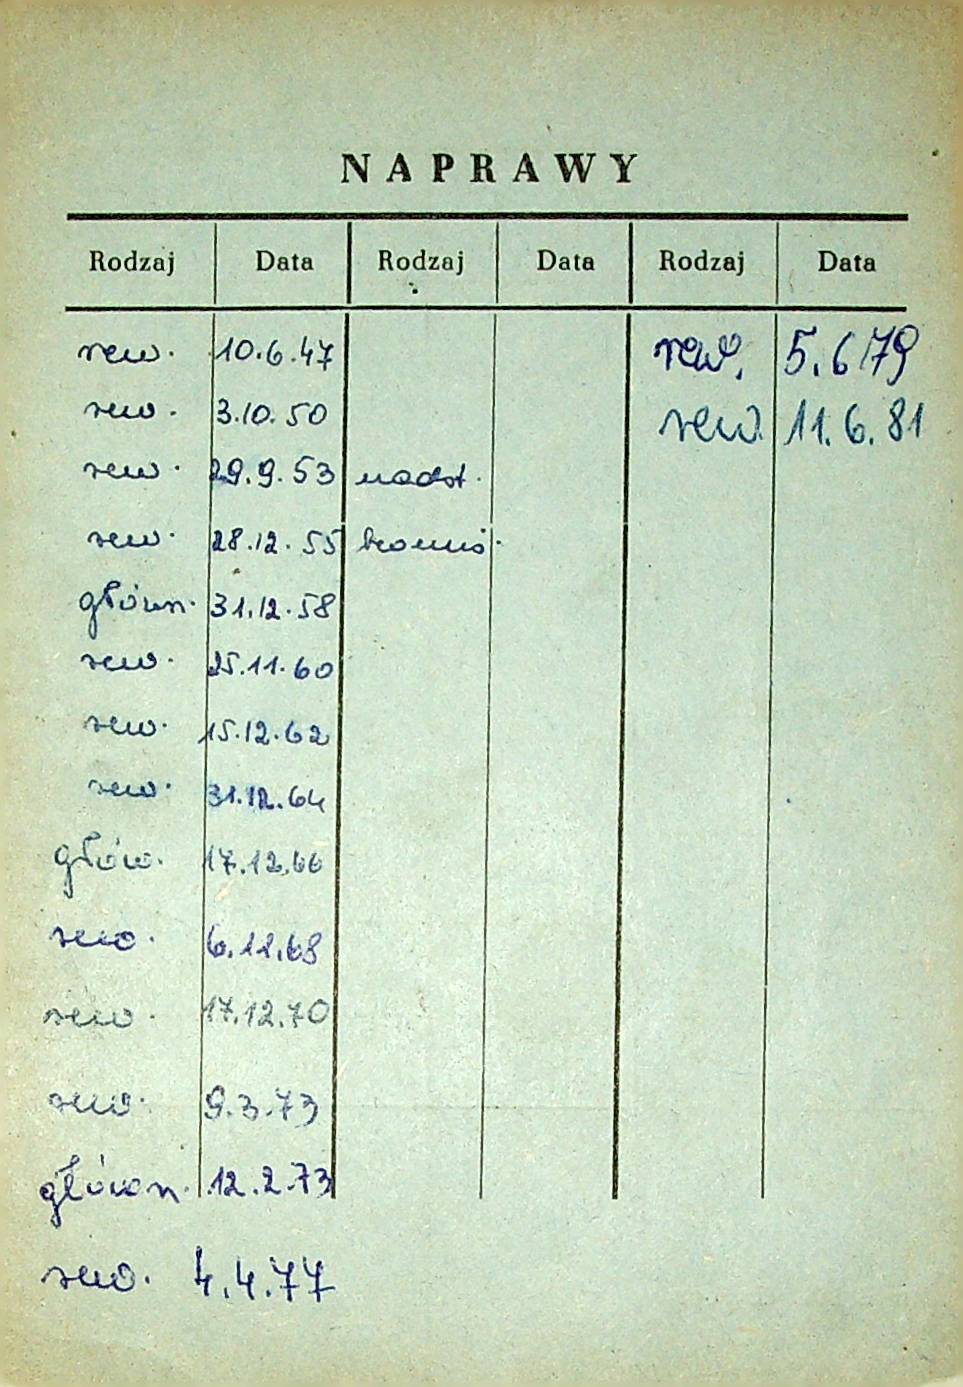 NAPRAWY
Rodzaj Data Rodzaj Data Rodzaj Data
rew. 10.6.47 rew. 5.6.79
rew. 3.10.50 rew. 11.6.81
rew. 29.9.53 nadst.
rew. 28.12.55
główn. 31.12.58
rew. 25.11.60
rew. 15.12.62
rew. 31.12.64
głów. 17.12.66
rew. 6.11.68
rew. 17.12.70
rew. 9.3.73
główn. 12.2.73
rew. 4.4.77